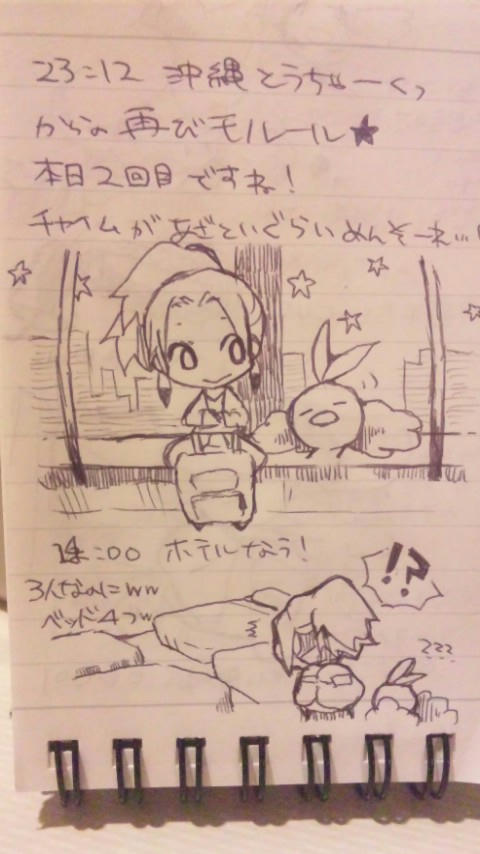 23:12 沖縄とうちゃーくっ
からの再びモノレール★
本日2回目ですね!
チャイムがあざといぐらいめんそーれ…!
:00 ホテルなう!
3人なのにww
ベッド4つw
!?
zzz